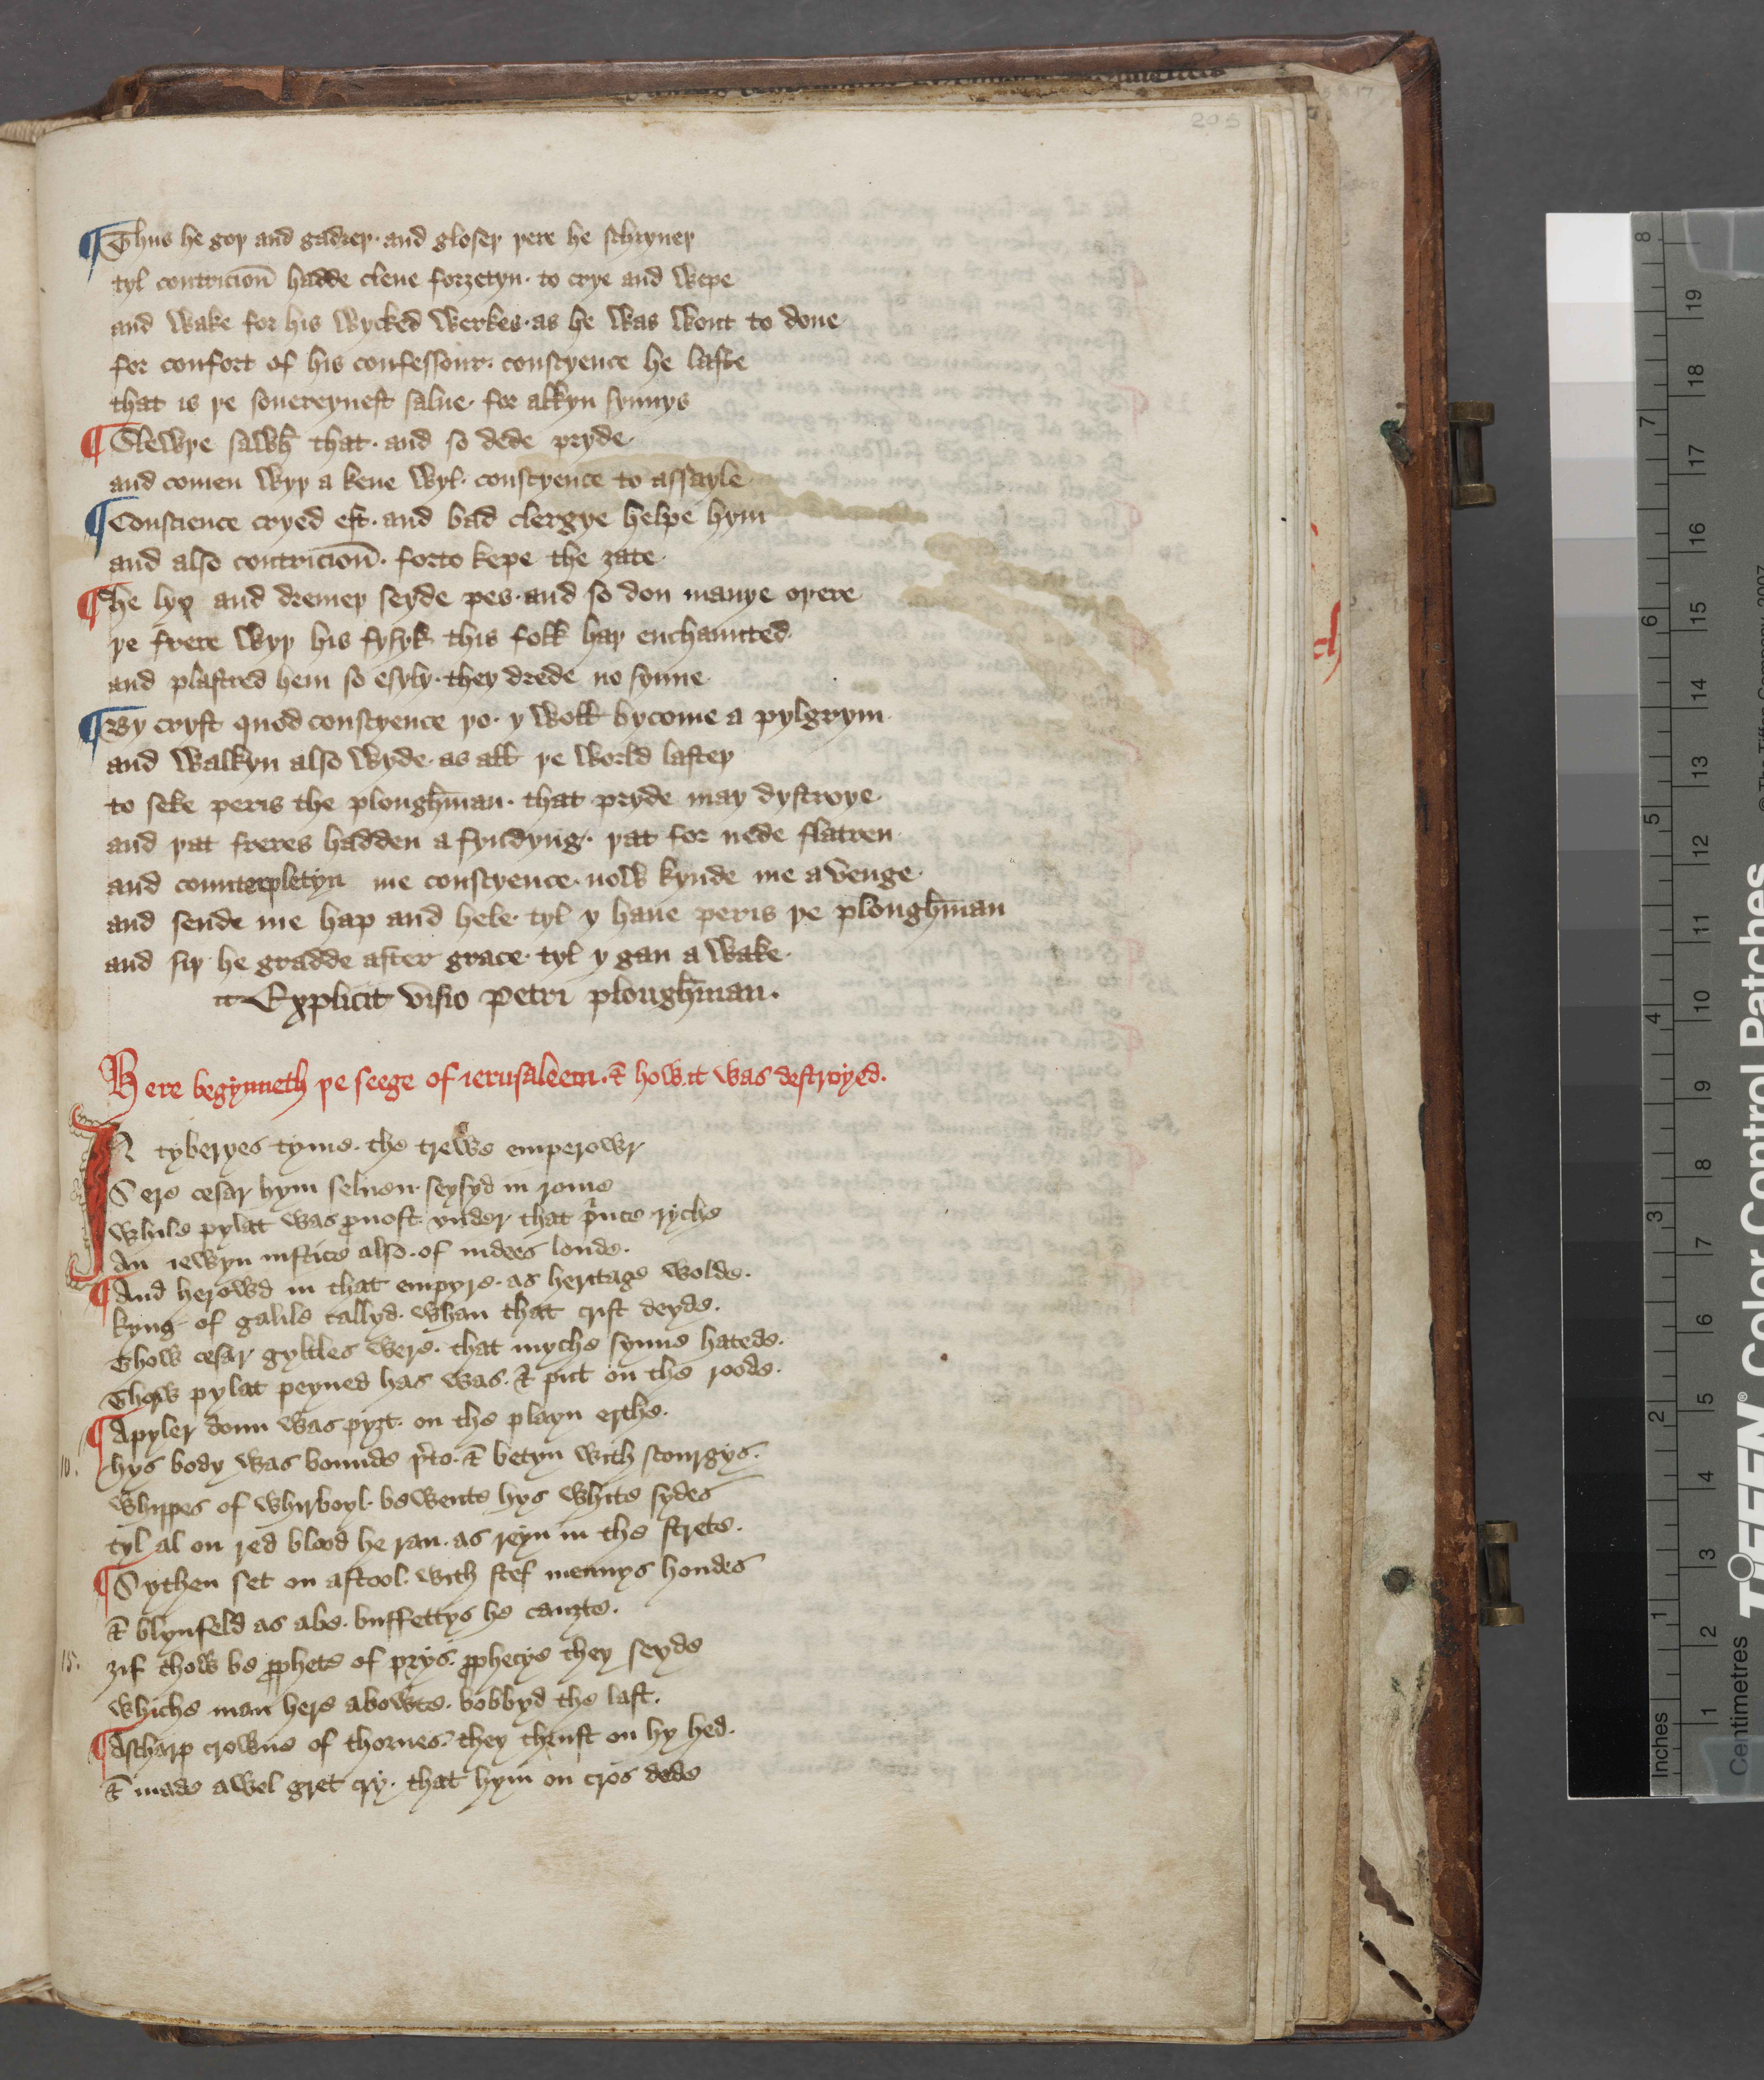 205
¶Thus he goþ and gadreþ· and gloseþ þere he schryueþ
tyl contricioñ hadde clene forȝetyn· to crye and wepe
and wake for his wycked werkes· as he was wont to done
for confort of his confessour· conscyence he lafte
that is þe souereynest salue· for alkyn synnys
¶Slewþe sawh that· and so dede pryde
and comen wyþ a kene wyl· conscyence to assayle
¶Conscience cryed eft· and bad clergye helpe hym
and also contricioñ· forto kepe the ȝate
¶he lyþ and dremeþ seyde pes· and so don manye oþere
þe frere wyþ his fysyk this folk haþ enchaunted
and plastred hem so esyly· they drede no synne
¶By cryst quod conscyence þo· y woll bycome a pylgrym
and walkyn also wyde· as all þe world lasteþ
to seke peris the ploughman· that pryde may dystroye
and þat freres hadden a fyndyng· þat for nede flatren
and counterpletyn me conscyence· now kynde me avenge
and sende me hap and hele· tyl y haue peris þe ploughman
and siþ he gradde after grace· tyl y gan a wake
Explicit visio Petri ploughman·
Here begynneth þe seege of ierusaleem· & how it was destroyed·
IN tyberyes tyme· the trewe emperowr
Sere cesar hym seluen· seysyd in rome
while pylat was prouost vnder that prince ryche
An iewyn iustice also· of iudees londe·
¶And herowd in that empyre· as heritage wolde·
kyng of galile callyd· whan that crist deyde·
Thow cesar gyltles were· that myche synne hatede·
Thow pylat peyned has was· & put on the roode·
¶A pyler doun was pyȝt· on the playn erthe·
10. hys body was bounde þerto· & betyn with scourgys·
whippes of whirboyl· bewente hys white sydes
tyl al on red blood he ran· as reyn in the strete·
¶Sythen set on astool· with stef mennys hondes
& blynfeld as abe· buffettys he cauȝte·
15. ȝif thow be prophete of prys· prophecye they seyde
whiche man here abowte· bobbyd the last·
¶Ascharp crowne of thornes· they thrust on hy hed·
& made awel gret cry· that hym on cros dede
Inches
1
2
3
4
5
6
7
8
Centimetres
1
2
3
4
5
6
7
8
9
10
11
12
13
14
15
16
17
18
19
TIFFEN® Color Control Patches
© The Tiffen Company, 2007